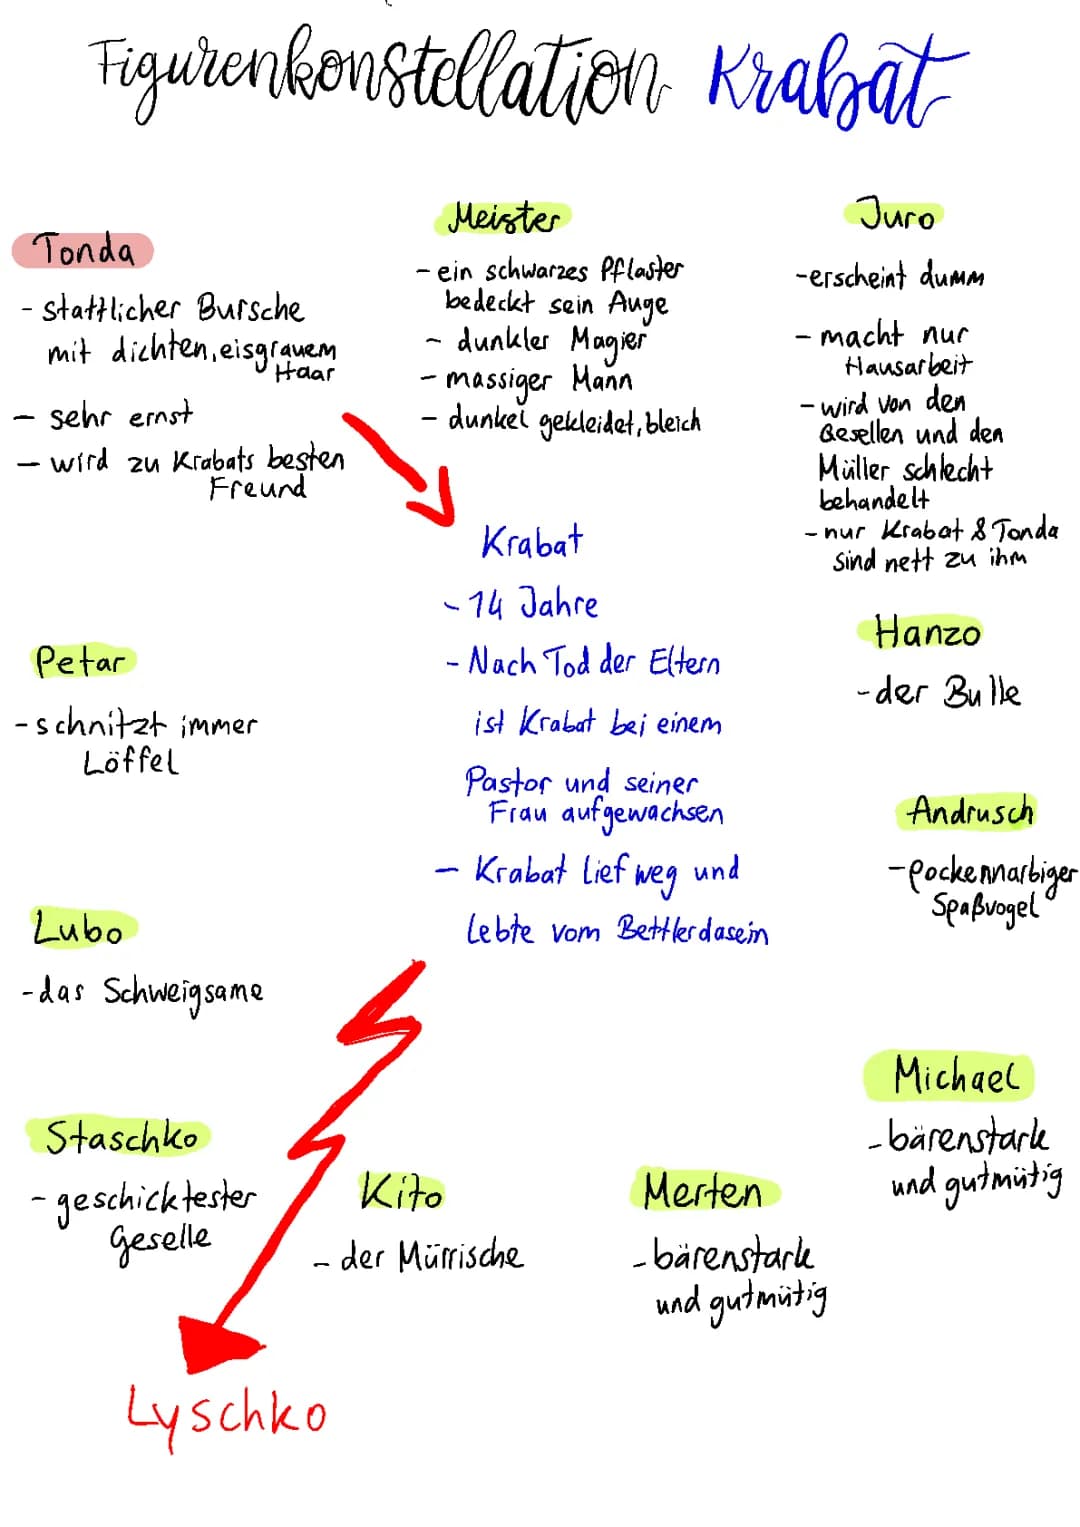 Figurenkonstellation Krabat
Tonda
- stattlicher Bursche
mit dichten, eisgrauem
Haar
- sehr ernst
- wird zu Krabats besten
Freund
Meister
- ein schwarzes Pflaster
bedeckt sein Auge
- dunkler Magier
- massiger Mann
- dunkel gekleidet, bleich
Juro
- erscheint dumm
- macht nur
Hausarbeit
- wird von den
Gesellen und den
Müller schlecht
behandelt
- nur Krabat & Tonda
sind nett zu ihm
Krabat
- 14 Jahre
- Nach Tod der Eltern
ist Krabat bei einem
Pastor und seiner
Frau aufgewachsen
- Krabat lief weg und
lebte vom Bettlerdasein
Petar
- schnitzt immer
Löffel
Hanzo
- der Bulle
Andrusch
- pockennarbiger
Spaßvogel
Lubo
- das Schweigsame
Michael
- bärenstark
und gutmütig
Staschko
- geschicktester
Geselle
Kito
- der Mürrische
Merten
- bärenstark
und gutmütig
Lyschko